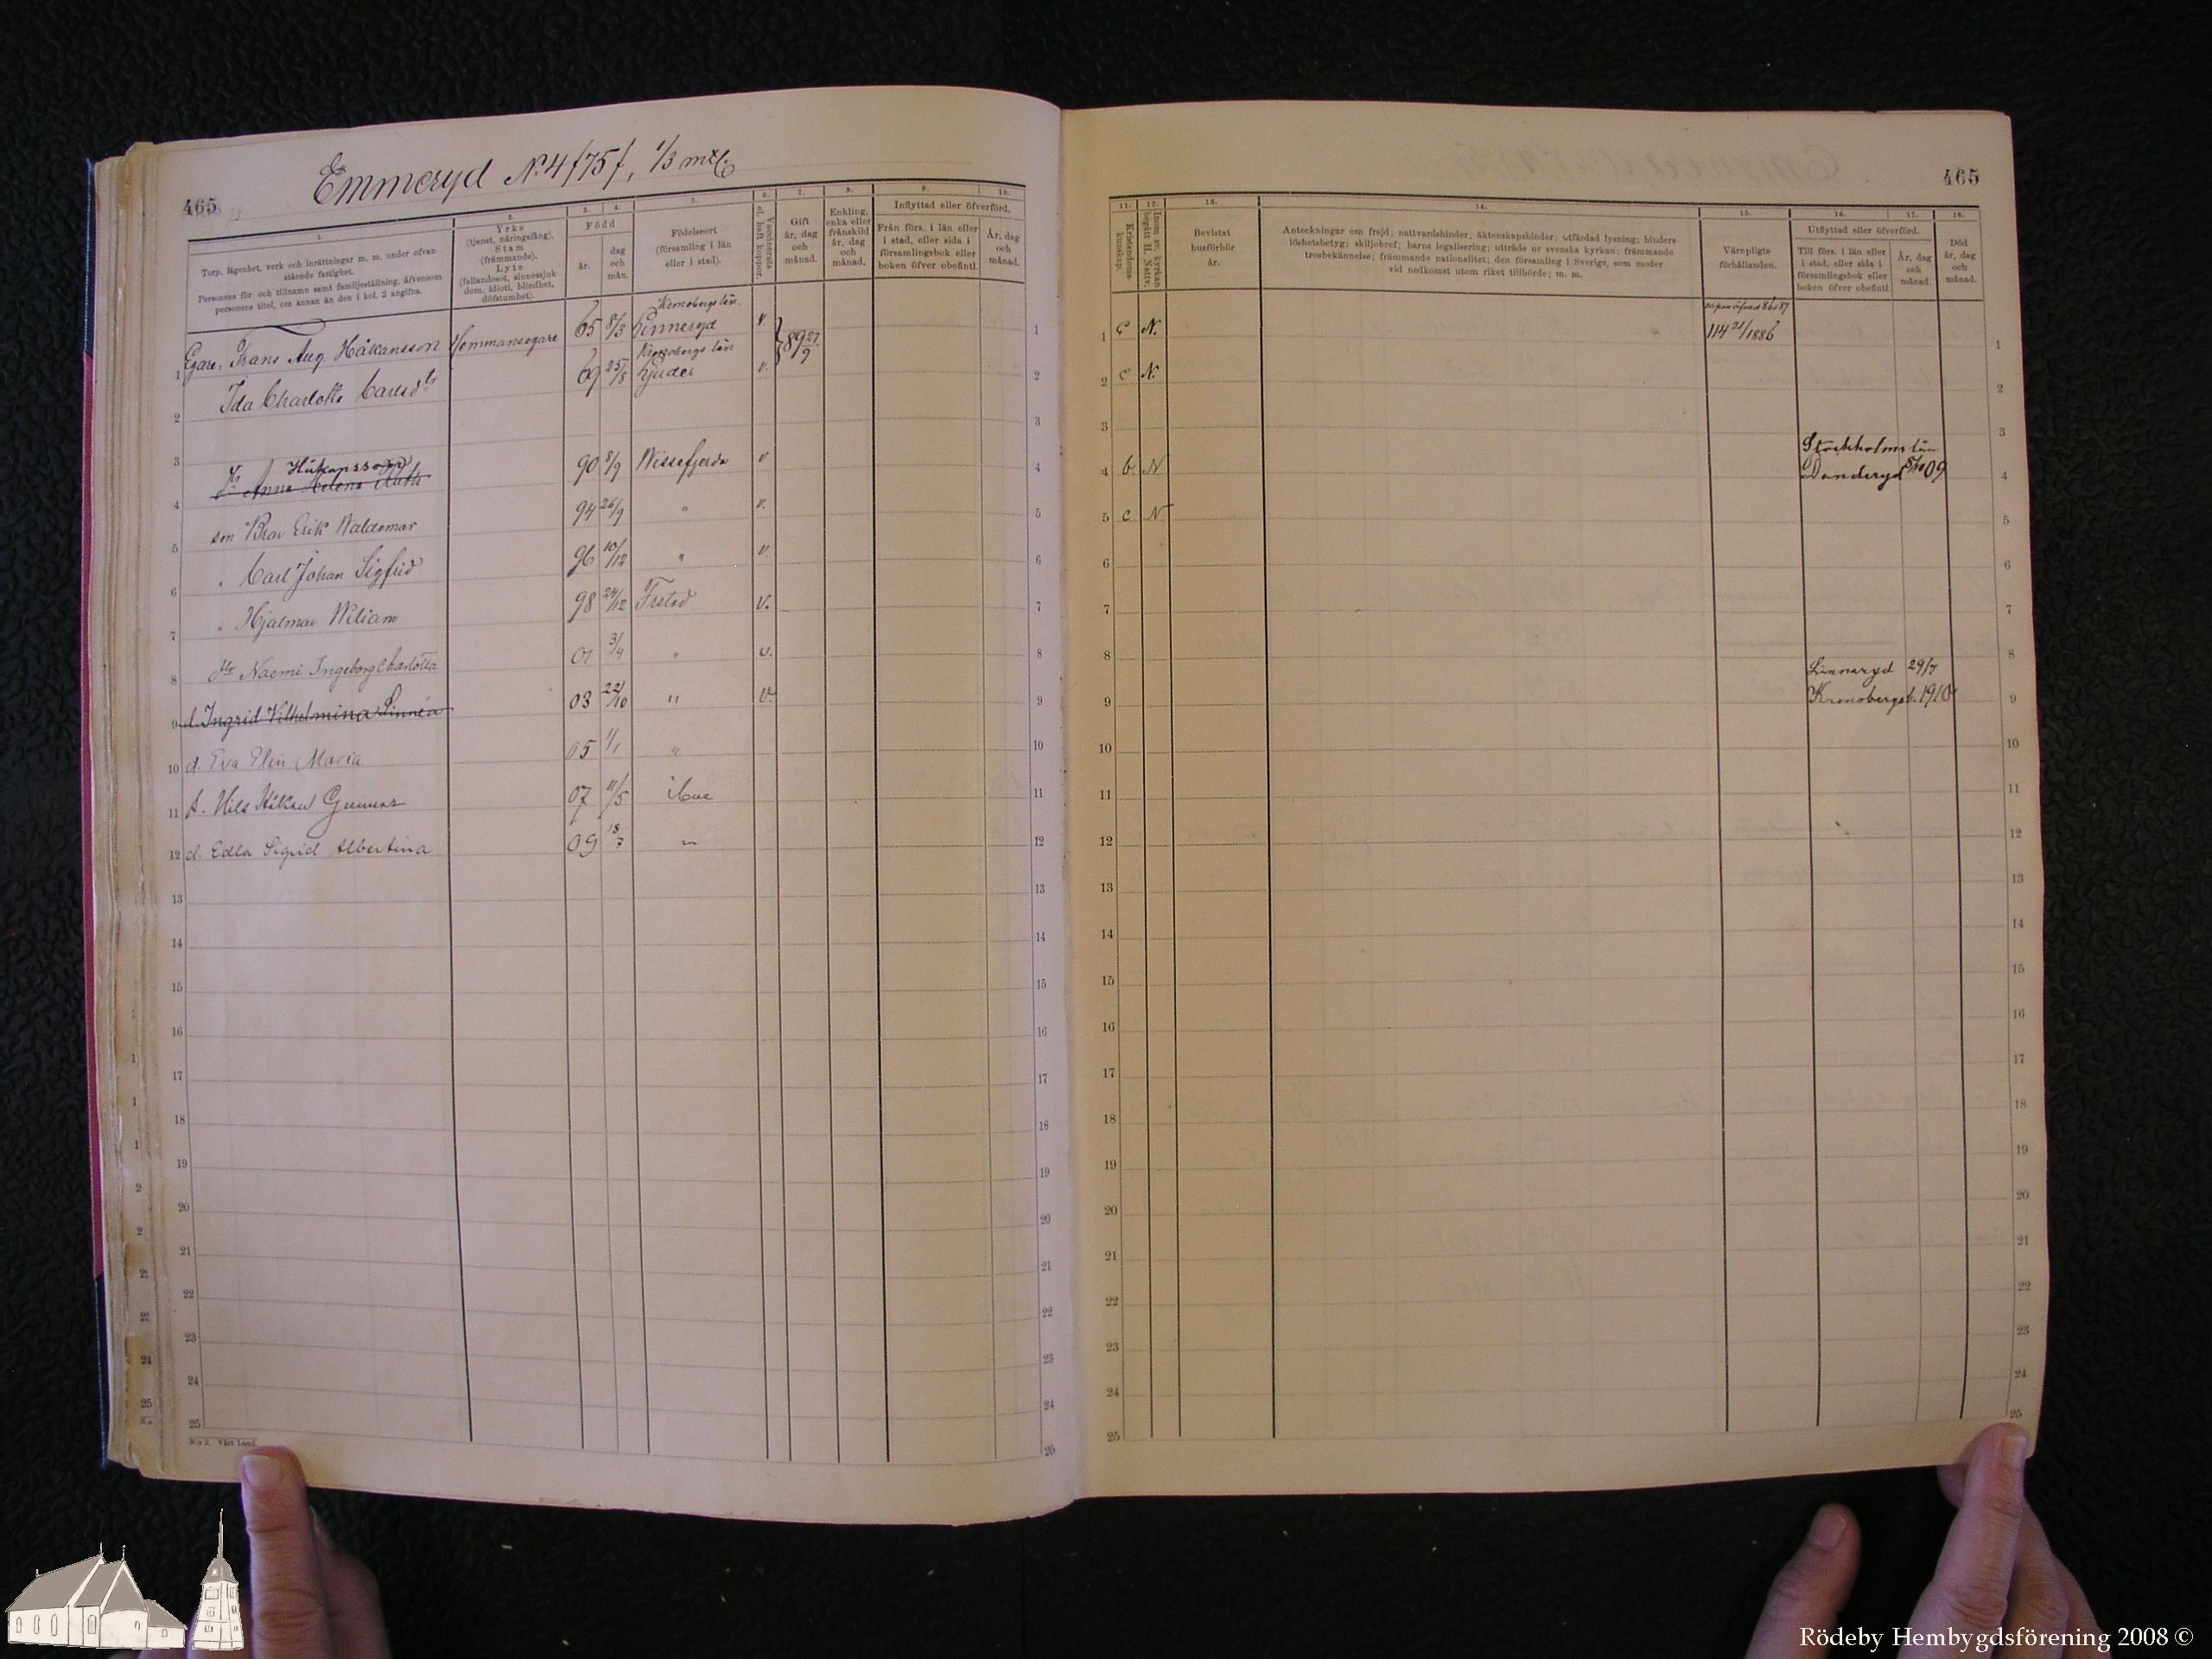 Emmeryd No 4/75/, 1/3 mtl.
465
1.
2.
3.
4.
5.
6.
7.
8.
9.
10.
Torp, lägenhet, verk och inrättningar m. m. under ofvan
stående fastighet.
Personens för- och tillnamn samt familjeställning, äfvensom
personens titel, om annan än den i kol. 2 angifna.
Yrke
(tjenst, näringsfång).
Stam
(främmande).
Lyte
(fallandesot, sinnessjuk
dom, idioti, blindhet,
döfstumhet).
Född
år.
dag
och
mån.
Födelseort
(församling i län
eller i stad).
Vaccinerats
el. haft koppor.
Gift
år, dag
och
månad.
Enkling,
enka eller
frånskild
år, dag
och
månad.
Inflyttad eller öfverförd.
Från förs. i län eller
i stad, eller sida i
församlingsbok eller
boken öfver obefintl.
År, dag
och
månad.
1 Egare, Frans Aug. Håkansson Hemmansegare 65 8/3 Kronobergs län. Linneryd v. 89 27/9 1
2 Ida Charlotta Carlsdtr 69 25/8 Kronobergs län Ljuder v. 2
3 3
4 Håkansson Anna Helena Ruth 90 8/9 Wissefjerda v 4
5 son Ivar Erik Waldemar 94 26/9 " v. 5
6 " Carl Johan Sigfrid 96 10/12 " v 6
7 " Hjalmar Wiliam 98 24/12 v. 7
8 dtr Naemi Ingeborg Charlotta 01 3/4 " v. 8
9 d. Ingrid Vilhelmina Linnéa 03 22/10 " v. 9
10 d. Eva Elin Maria 05 1/1 " 10
11 s. Nils Håkan Gunnar 07 11/5 ibm 11
12 d. Edla Sigrid Albertina 09 18/7 " 12
13 13
14 14
15 15
16 16
17 17
18 18
19 19
20 20
21 21
22 22
23 23
24 24
25 25
465
11.
12.
13.
14.
15.
16.
17.
18.
Kristendoms-
kunskap.
Inom sv. kyrkan
begått H. Nattv.
Bevistat
husförhör
år.
Anteckningar om frejd; nattvardshinder; äktenskapshinder; utfärdad lysning; hinders
löshetsbetyg; skiljobref; barns legalisering; utträde ur svenska kyrkan; främmande
trosbekännelse; främmande nationalitet; den församling i Sverige, som moder
vid nedkomst utom riket tillhörde; m. m.
Värnpligts-
förhållanden.
Utflyttad eller öfverförd.
Till förs. i län eller
i stad, eller sida i
församlingsbok eller
boken öfver obefintl.
År, dag
och
månad.
Död
år, dag
och
månad.
1 c N. 114 21/1886 1
2 c N. 2
3 3
4 b. N Stockholms län Danderyd 5/10 09 4
5 c N 5
6 6
7 7
8 8
9 Linneryd 29/7 Kronobergs l. 1910 9
10 10
11 11
12 12
13 13
14 14
15 15
16 16
17 17
18 18
19 19
20 20
21 21
22 22
23 23
24 24
25 25
Rödeby Hembygdsförening 2008 ©